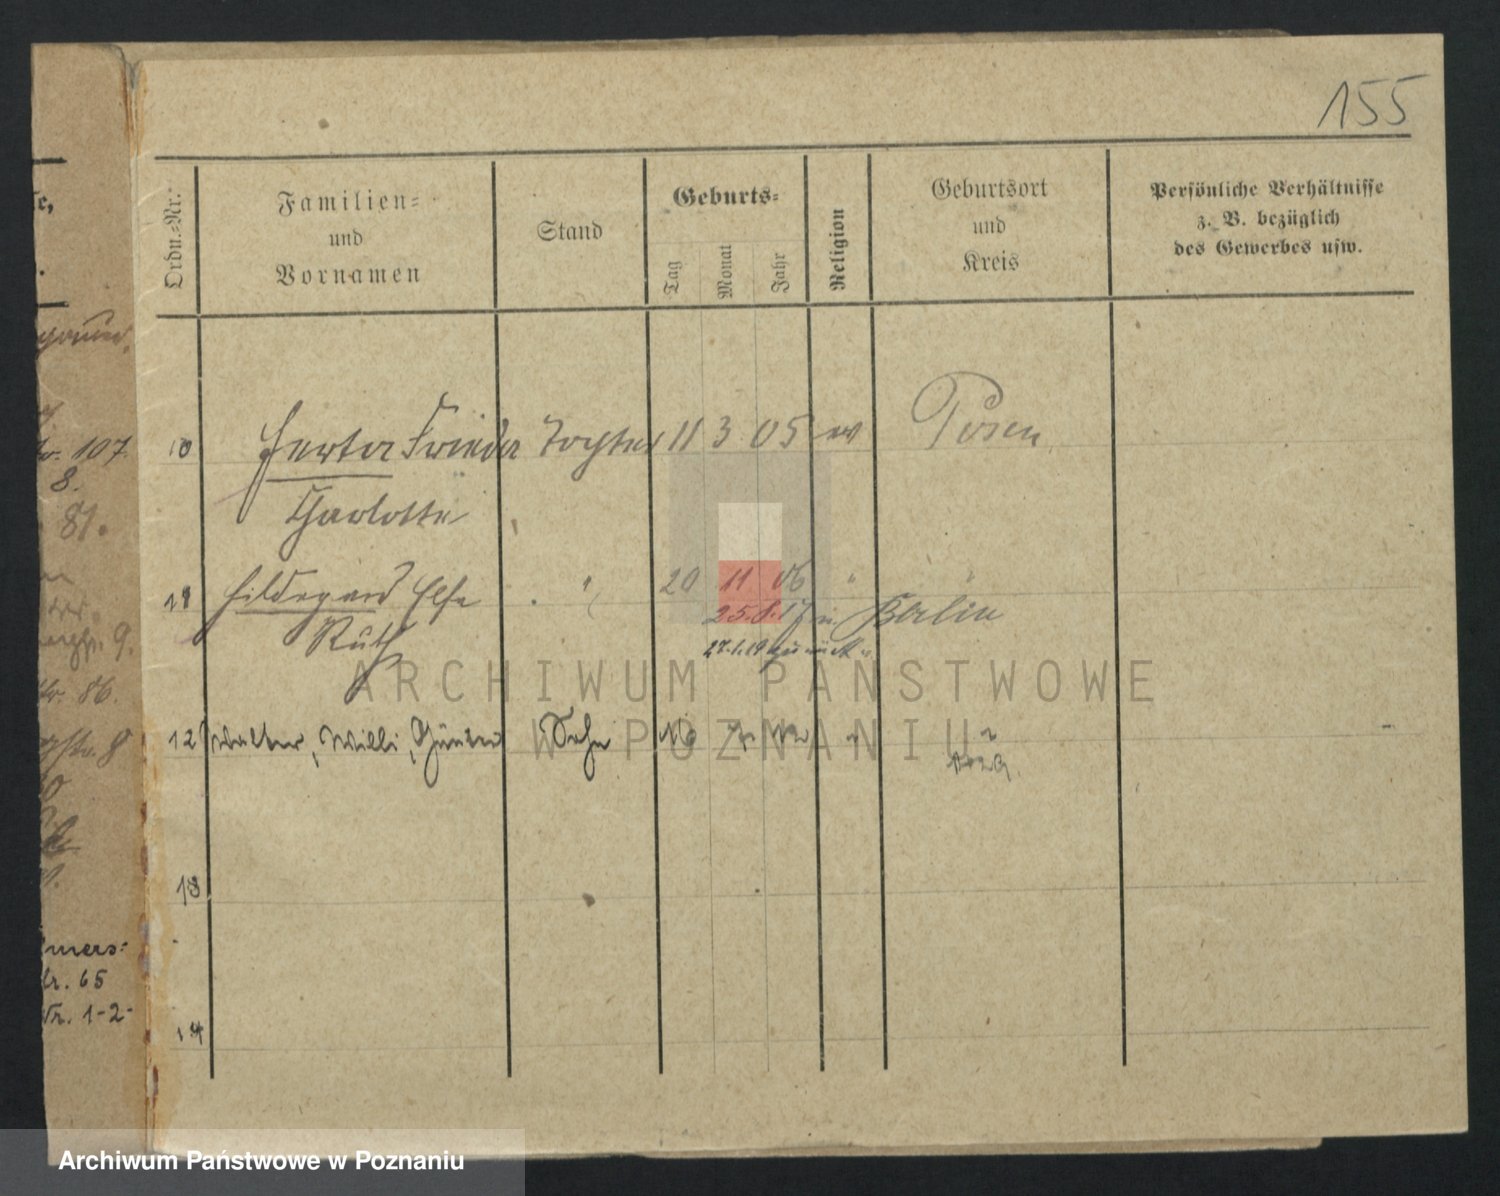 155
Ordn.-Nr.
Familien-
und
Vornamen
Stand
Geburts-
Tag
Monat
Jahr
Religion
Geburtsort
und
Kreis
Persönliche Verhältnisse
z. B. bezüglich
des Gewerbes usw.
10 Herta Frieda Tochter 11 3 05 ev Posen
Charlotte
11 Hildegard Else " 20 11 06 "
Ruth 25.8.17 n. Berlin
27.1.19 zurück
12 Walter, Willi, Günter Sohn
13
14
107
8.
81.
9.
86.
8
65
1-2-
ARCHIWUM PAŃSTWOWE
W POZNANIU
Archiwum Państwowe w Poznaniu